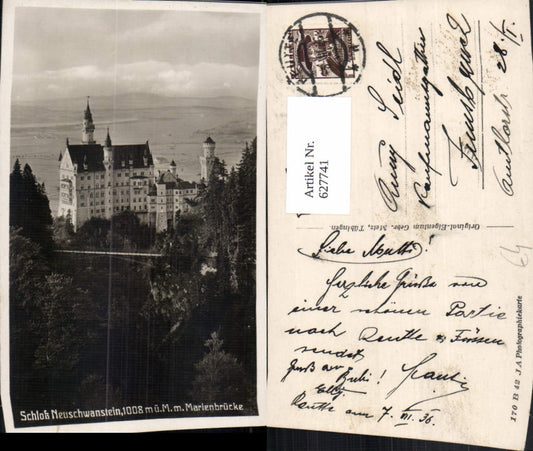 Schloß Neuschwanstein, 1008 m ü. M. m. Marienbrücke
Artikel Nr.
627741
Seidl
Kaufmannsgattin
28/I.
Original-Eigentum Gebr. Metz, Tübingen
170 B 42 JA Photographiekarte
Liebe Mutti!
Herzliche Grüße von
einer schönen Partie
nach Reutte u. Füssen
sendet
Reutte am 7. VI. 36.